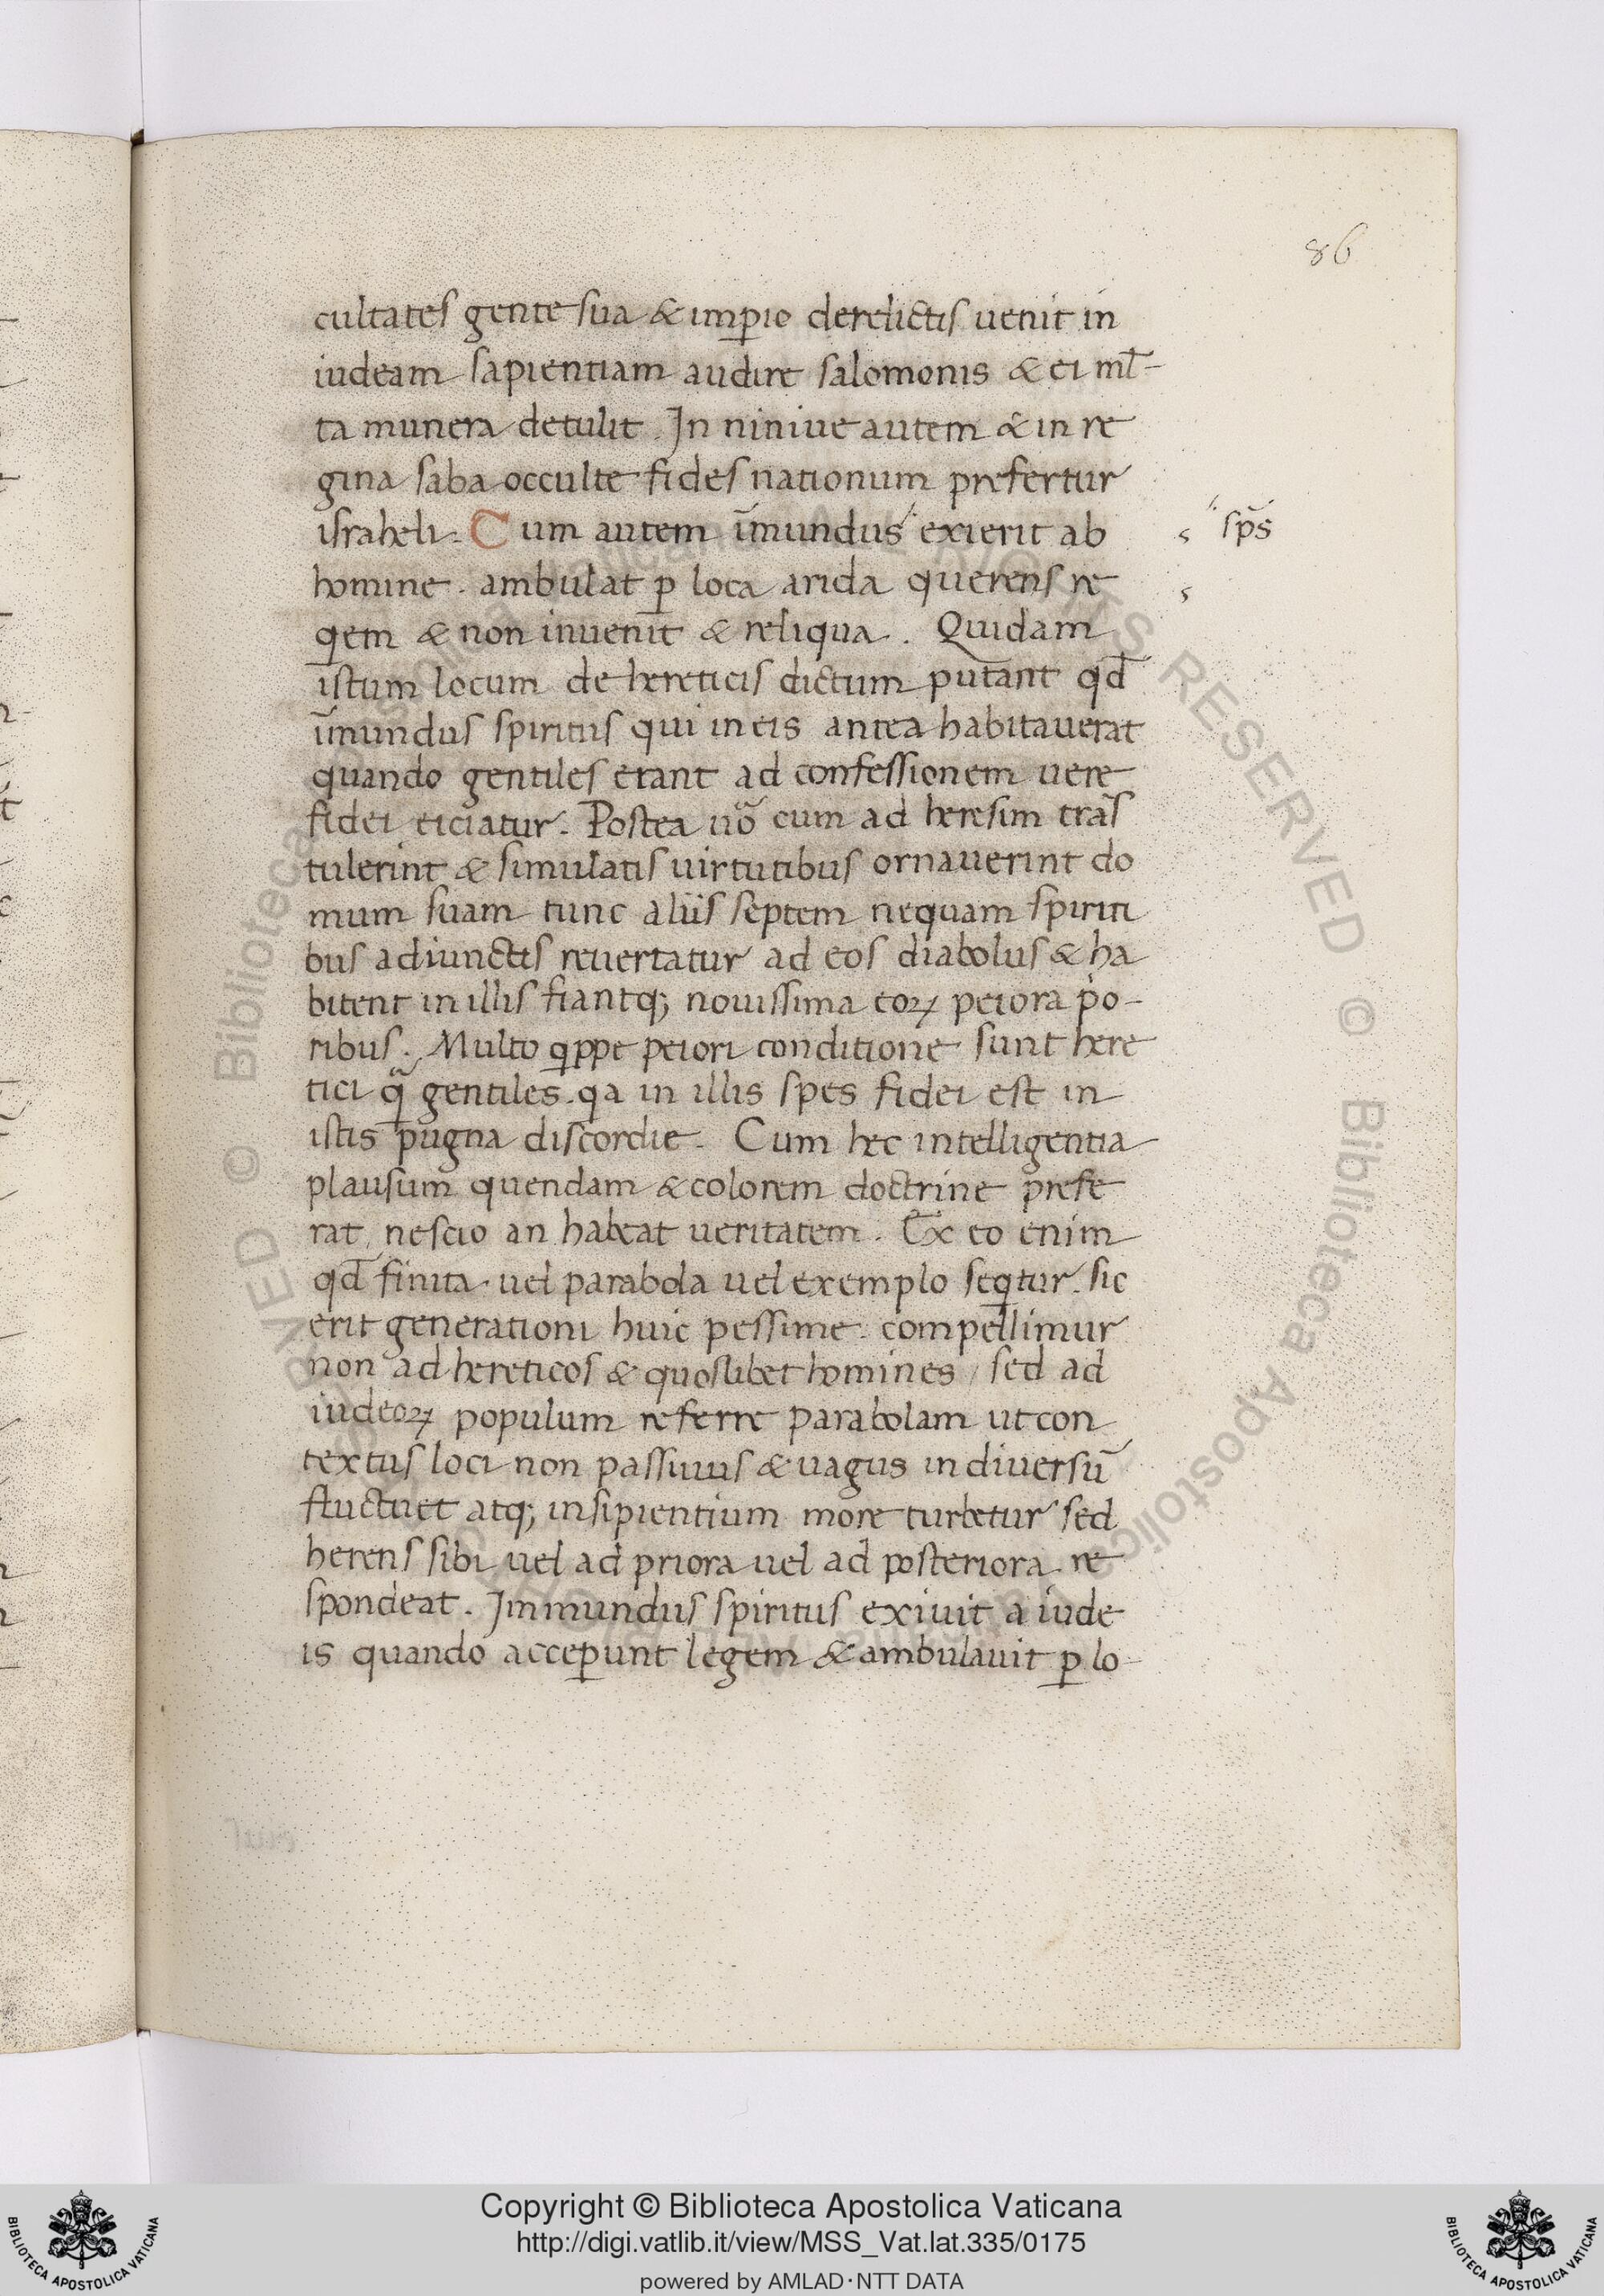 86
cultates gente sua & imꝑio derelictis uenit in
iudeam sapientiam audire salomonis & ei ml̅-
ta munera detulit. In niniue autem & in re
gina saba occulte fides nationum prefertur
israheli. Cum autem im̅undus exierit ab
sp̅s
homine. ambulat ꝑ loca arida querens re
qem & non inuenit & reliqua. Quidam
istum locum de hereticis dictum putant qd̅
im̅undus spiritus qui in eis antea habitauerat
quando gentiles erant ad confessionem uere
fidei eiciatur. Postea uo̅ cum ad heresim tra̅s
tulerint & simulatis uirtutibus ornauerint do
mum suam tunc aliis septem nequam spiriti
bus adiunctis reuertatur ad eos diabolus & ha
bitent in illis fiantq; nouissima eoꝝ peiora po-
ribus. Multo qippe peiori conditione sunt here
tici qͣ gentiles. qa in illis spes fidei est in
istis pugna discordie. Cum hec intelligentia
plausum quendam & colorem doctrine prefe
rat, nescio an habeat ueritatem. Ex eo enim
qd̅ finita uel parabola uel exemplo seqtur. sic
erit generationi huic pessime. compellimur
non ad hereticos & quoslibet homines / sed ad
iudeoꝝ populum referre parabolam ut con
textus loci non passiuus & uagus in diuersu̅
fluctuet atq; insipientium more turbetur sed
herens sibi uel ad priora uel ad posteriora re
spondeat. Immundus spiritus exiuit a iude
is quando acceꝑunt legem & ambulauit ꝑ lo-
Copyright © Biblioteca Apostolica Vaticana
http://digi.vatlib.it/view/MSS_Vat.lat.335/0175
powered by AMLAD·NTT DATA
BIBLIOTECA APOSTOLICA VATICANA
BIBLIOTECA APOSTOLICA VATICANA